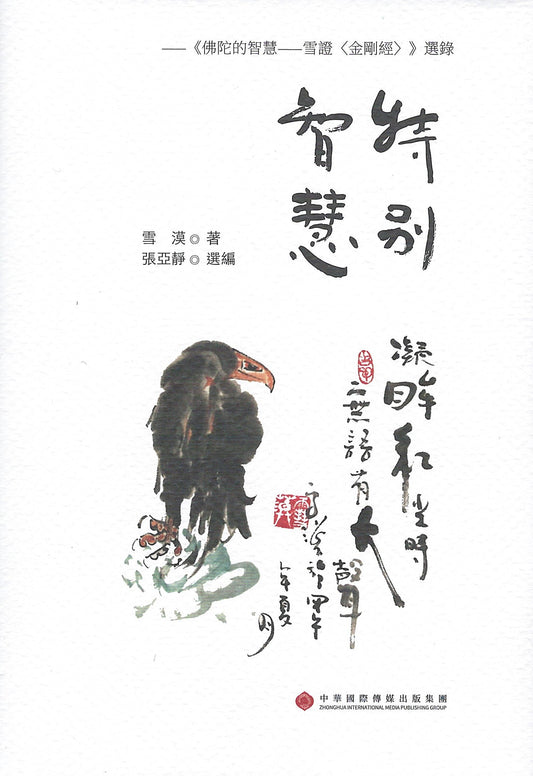 ——《佛陀的智慧——雪證〈金剛經〉》選錄
特別
智慧
雪 漠◎著
張亞靜◎選編
凝眸紅塵時
無語有大聲
雪漠於甲午
年夏月
中華國際傳媒出版集團
ZHONGHUA INTERNATIONAL MEDIA PUBLISHING GROUP